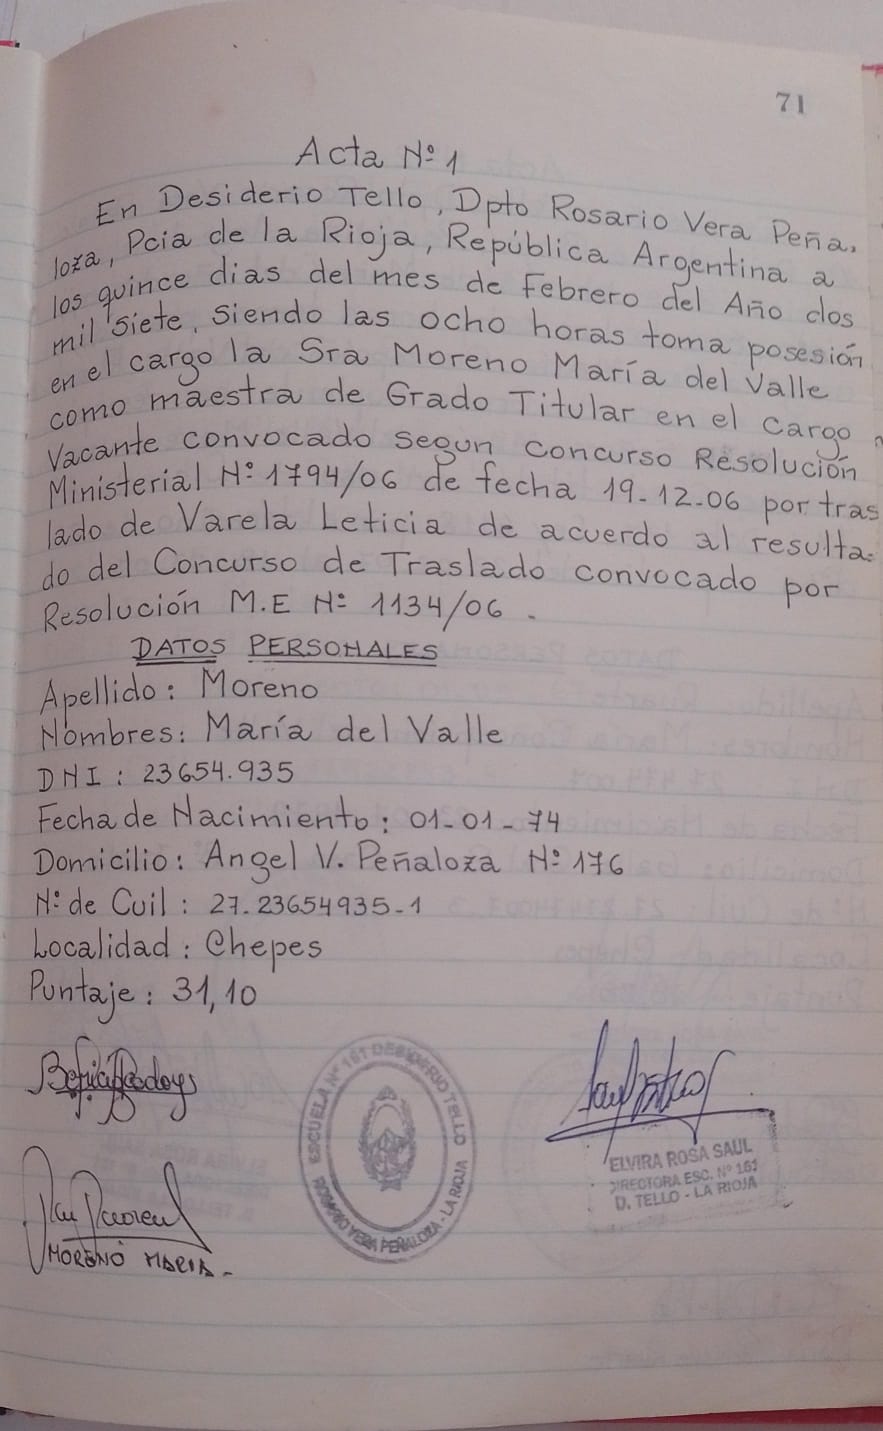 71
Acta Nº 1
En Desiderio Tello, Dpto Rosario Vera Peña.
loza, Pcia de la Rioja, República Argentina a
los quince dias del mes de Febrero del Año dos
mil siete, siendo las ocho horas toma posesión
en el cargo la Sra Moreno María del Valle
como maestra de Grado Titular en el cargo
Vacante convocado segun concurso Resolución
Ministerial Nº 1794/06 de fecha 19-12-06 por tras
lado de Varela Leticia de acuerdo al resulta-
do del Concurso de Traslado convocado por
Resolución M.E Nº 1134/06.
DATOS PERSONALES
Apellido: Moreno
Nombres: María del Valle
DNI: 23654.935
Fecha de Nacimiento: 01-01-74
Domicilio: Angel V. Peñaloza Nº 176
Nº de Cuil: 27.23654935-1
Localidad: Chepes
Puntaje: 31,10
ESCUELA Nº 161 DESIDERIO TELLO
ROSARIO VERA PEÑALOZA - LA RIOJA
ELVIRA ROSA SAUL
DIRECTORA ESC. Nº 161
D. TELLO - LA RIOJA
MORENO MARIA.